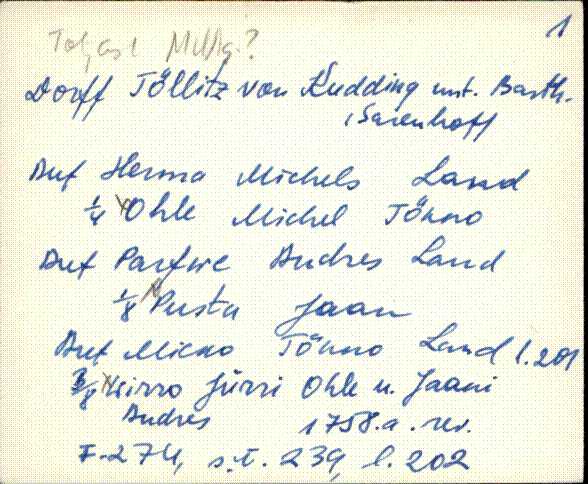 1
Dorff Töllitz von Kudding unt. Barth.
Sarenhoff
Auf Herma Michels Land
1/4 Ohle Michel Tönno
Auf Parfwe Andres Land
1/8 Pusta Jaan
Auf Micko Tönno Land l. 201
3/8 Jürri Ohle u. Jaani
Andres 1758. a. rev.
F. 274, s.ü. 239, l. 202